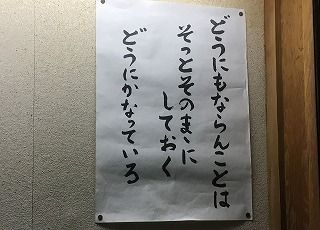 どうにもならんことは
そっとそのまゝに
しておく
どうにかなっている